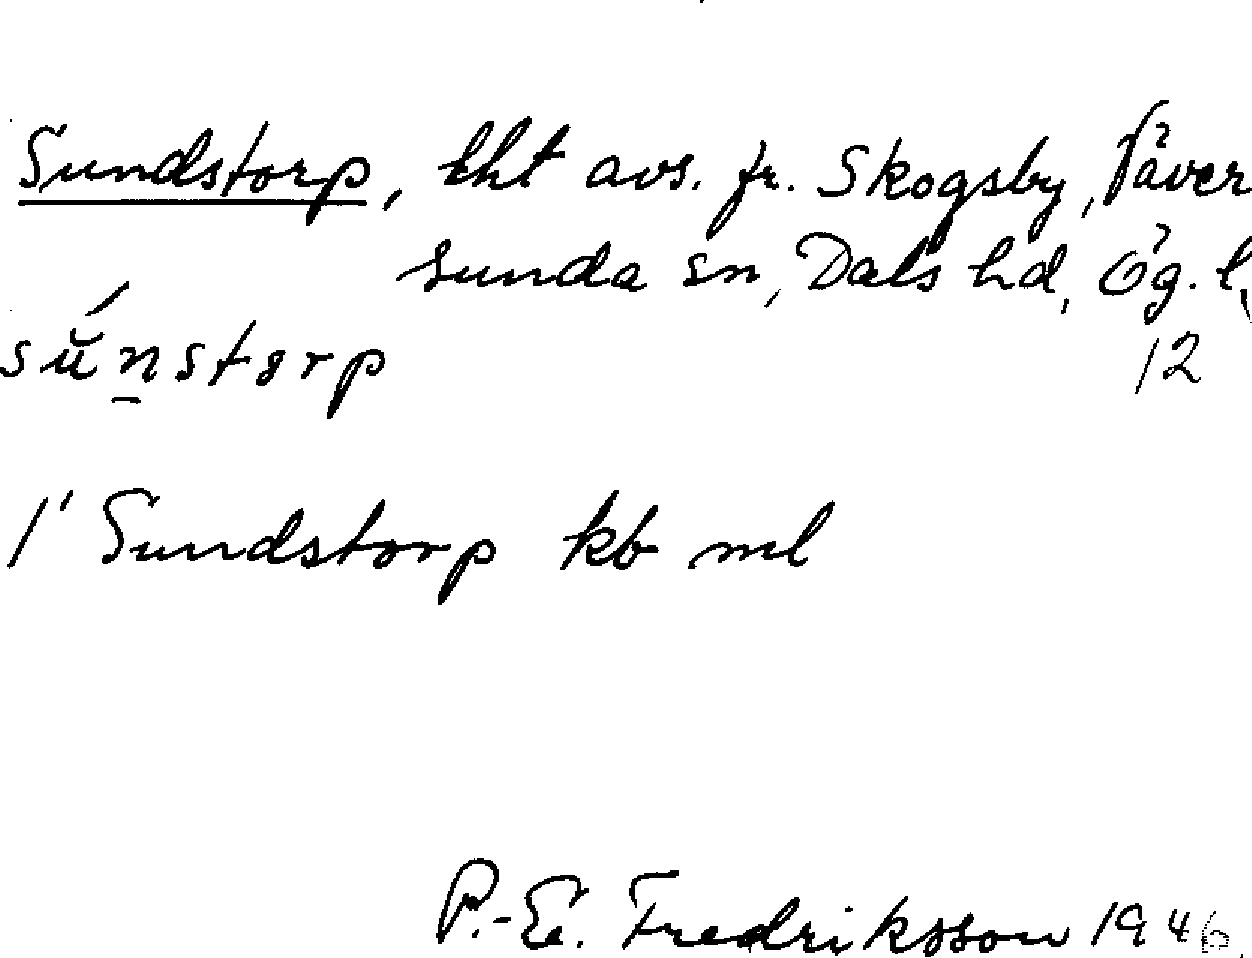 Sundstorp, lht avs. fr. Skogsby, Väver
sunda sn, Dals hd, Ög. l,
12
sŭ́n̠storp
1' Sundstorp kb ml
P.-E. Fredriksson 1946.